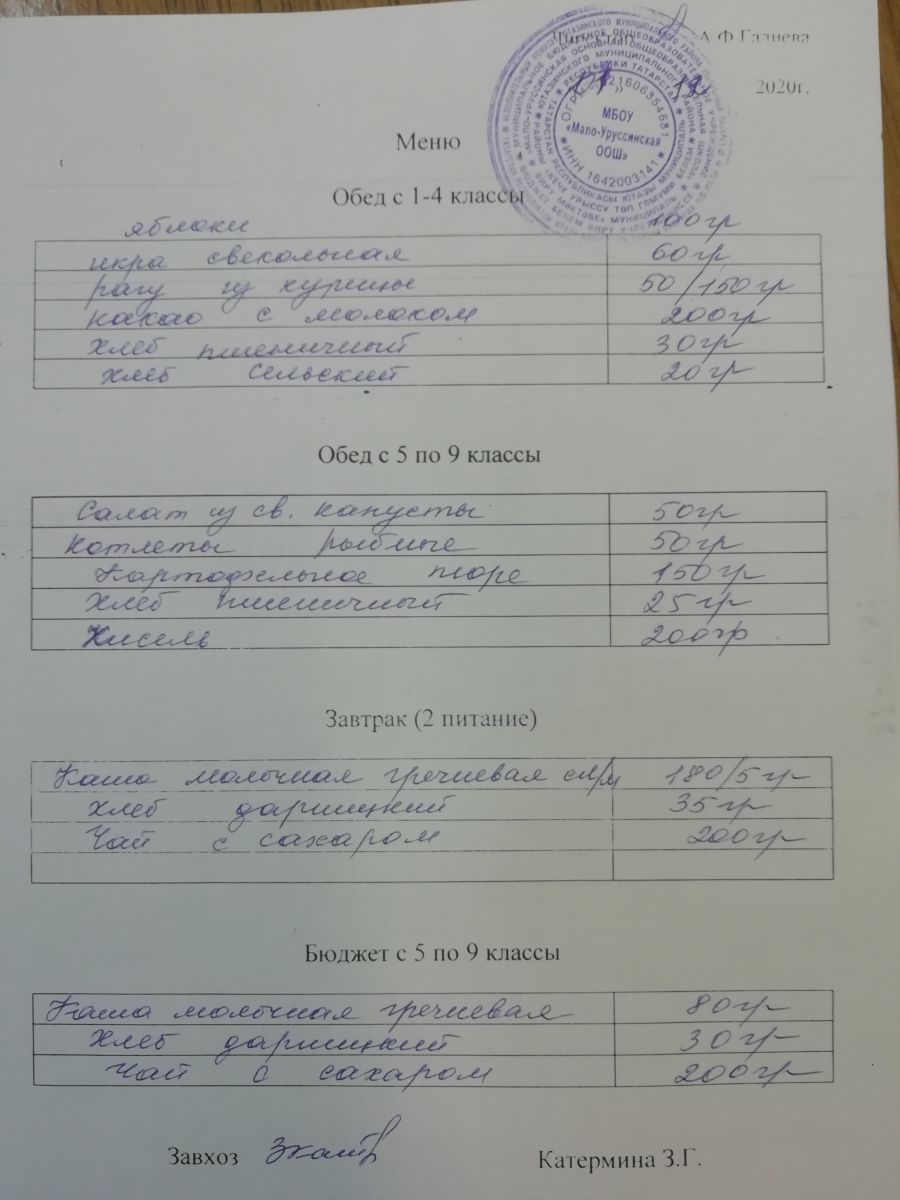 Директор А.Ф.Газиева
2020г.
МБОУ
«Мало-Уруссинская
ООШ»
ИНН 1642003141
Меню
Обед с 1-4 классы
яблоки 100гр
икра свекольная 60гр
рагу из курицы 50/150гр
какао с молоком 200гр
хлеб пшеничный 30гр
хлеб сельский 20гр
Обед с 5 по 9 классы
Салат из св. капусты 50гр
Котлеты рыбные 50гр
Картофельное пюре 150гр
Хлеб пшеничный 25гр
Кисель 200гр
Завтрак (2 питание)
Каша молочная гречневая сл/м 180/5гр
хлеб дарницкий 35гр
Чай с сахаром 200гр
Бюджет с 5 по 9 классы
Каша молочная гречневая 80гр
Хлеб дарницкий 30гр
Чай с сахаром 200гр
Завхоз Катермина З.Г.